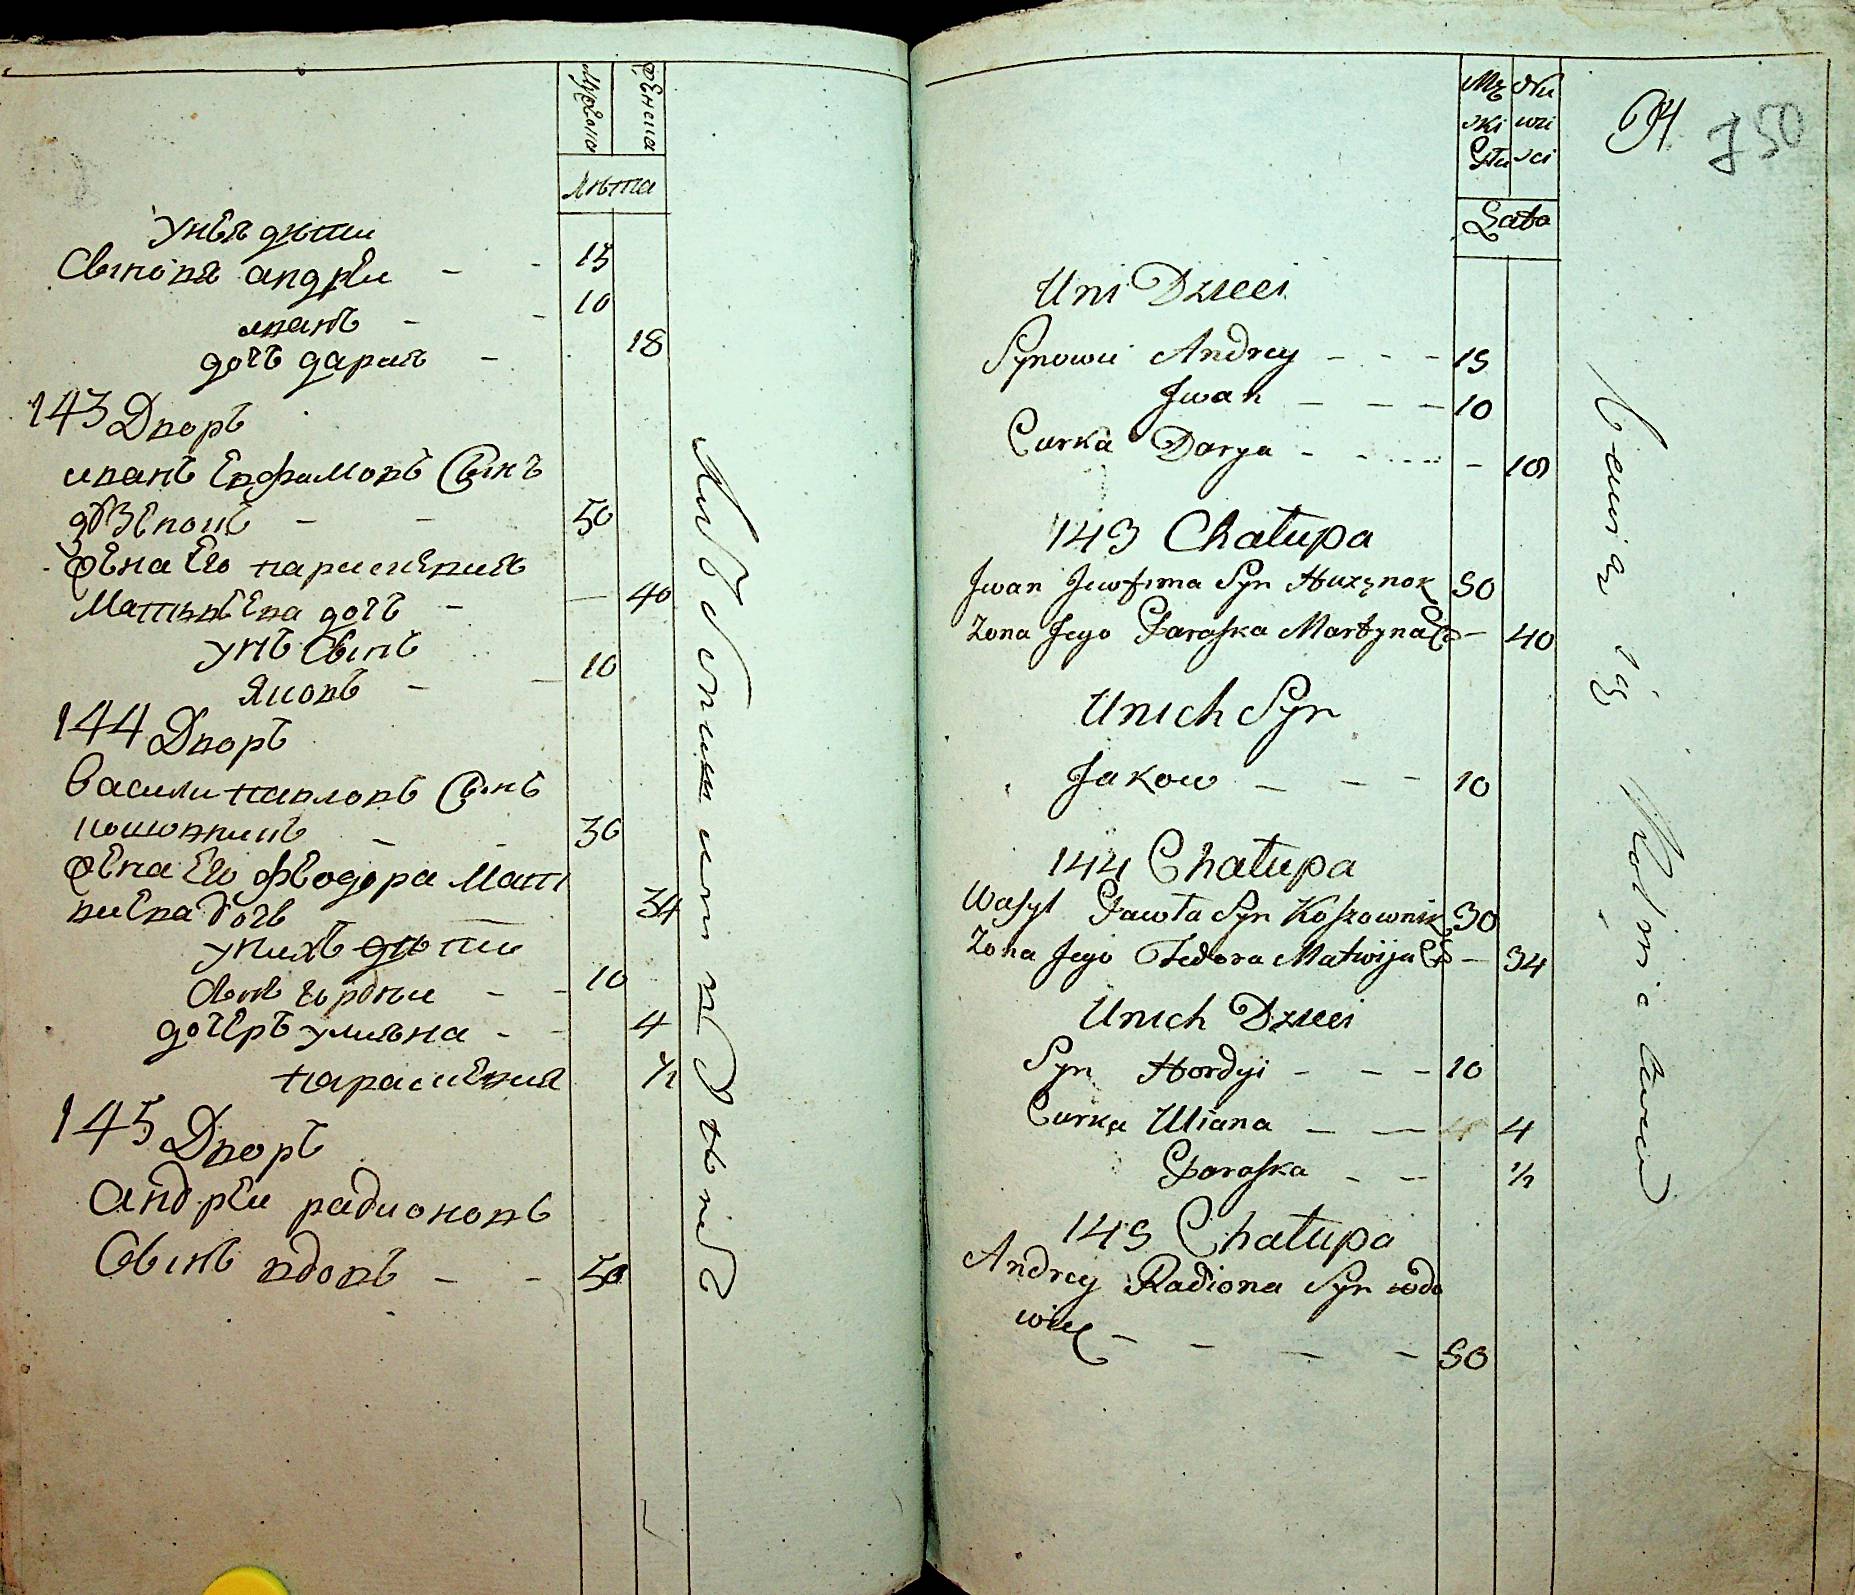 Мужеска
Женска
лѣта
унея дѣти
Синовя андрѣи - - 15
иванъ - - 10
дочъ дария - 18
143 Дворъ
иванъ Евфимовъ Синъ
- - 50
жена Его параскевия
Матвѣева дочъ - 40
унихъ Синъ
Яковъ - - 10
144 Дворъ
Васили павловъ Синъ
кошовникъ - - 30
жена Его феодора Мат
виева дочъ 34
унихъ дѣти
Синъ гордѣи - - 10
дочеръ улияна - - 4
параскевия ½
145 Дворъ
андрѣи радионовъ
Синъ вдовъ - - 50
Mę ski
Nie wie ści
Płci
Lata
750
Uni Dzieci
Synowie Andrey - - - 15
Jwan - - - 10
Curka Darya - - - - 18
143 Chałupa
Jwan Jewfima Syn 50
Zona Jego Paraska Martyna C - 40
Unich Syn
Jakow - - - 10
144 Chałupa
Wasyl Pawła Syn Koszownik 30
Zona Jego Fedora Matwija C - 34
Unich Dzieci
Syn Hordyi - - - 10
Curka Uliana - - 4
Paraska - - ½
145 Chałupa
Andrey Radiona Syn wdo
wiec - - - - 50